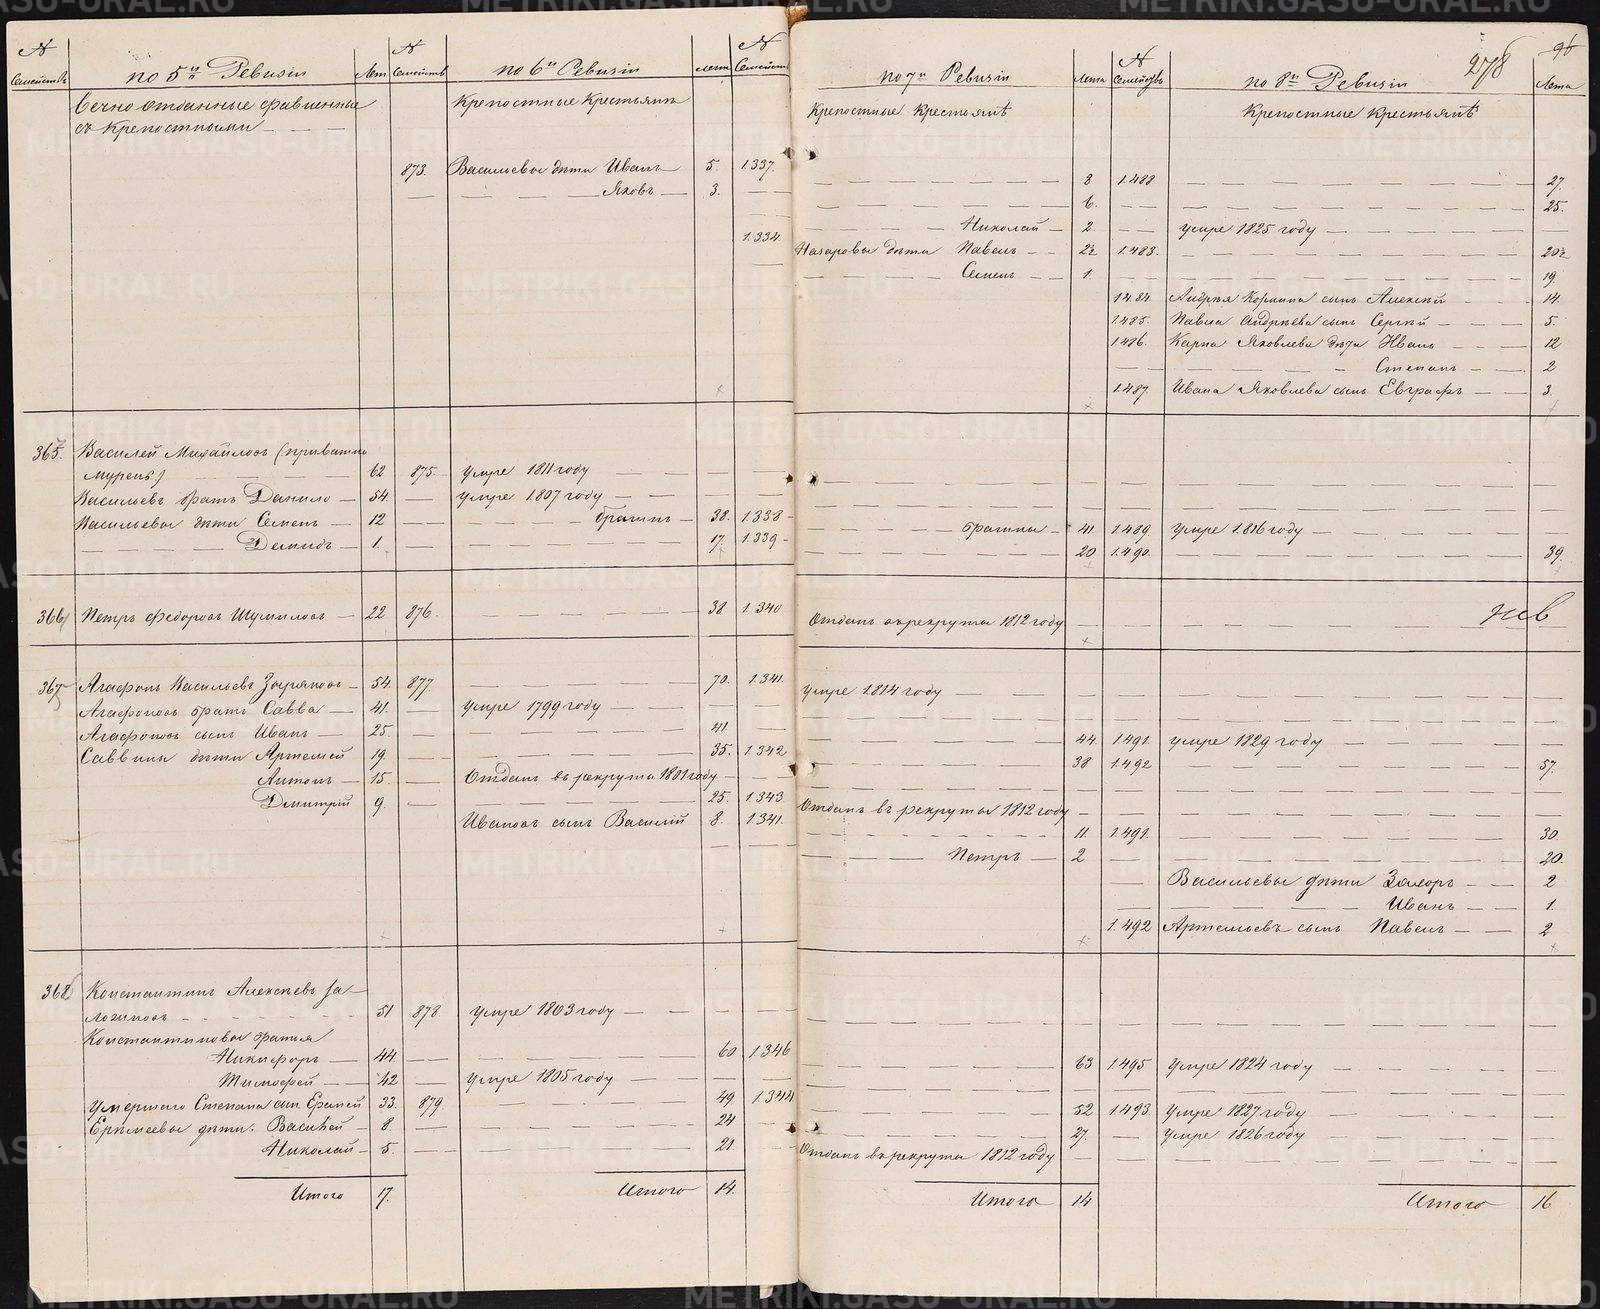 № Семействъ
по 5й Ревизіи
Лет
№ Семействъ
по 6й Ревизіи
Лета
№ Семейств
Вечно отданные сравненные
съ Крепостными — — —
Крепостные Крестьянъ
873. Васильевы дѣти Иванъ — 5. 1.337.
— Яковъ — 3. —
1.334.
365. Василей Михайловъ (
) 62 875 умре 1811 году — —
Васильевъ братъ Данило — 54. — умре 1807 году — —
Васильевы дѣти Семенъ — 12 — 38. 1.338 —
— Демидъ — 1. — 17. 1.339 —
366 Петръ Федоровъ Шумиловъ — 22 876. — 38 1.340
367 Агафонъ Васильевъ — 54. 877. — 70. 1.341.
Агафоновъ братъ Савва — 41. — умре 1799 году —
Агафоновъ сынъ Иванъ — 25. — 41.
Саввины дѣти Артемей 19. — 35. 1.342
Антонъ — 15. — Отданъ въ рекруты 1801 году —
Дмитрій 9. — 25. 1.343
Ивановъ сынъ Василій 8. 1.341.
368 Константинъ Алексѣевъ За-
логиновъ 51. 878 умре 1803 году —
Константиновы братья
Никифоръ — 44. — 60 1.346
Тимофей — 42 — умре 1805 году —
Умершаго Степана сын. Еремей 33. 879 — 49 1.344
Еремеевы дѣти. Василей — 8. — 24
Николай — 5. — 21.
Итого 17.
Итого 14.
по 7й Ревизіи
Лета
№ Семействъ
278
по 8й Ревизіи
96
Лета
Крепостные Крестьянѣ
Крепостные Крестьянѣ
— 8 1.488 — 27.
— 6. — 25.
— Николай — 2. — умре 1825 году —
Назаровы дѣти Павелъ — 22 1.483. — 20
— Семенъ — 1. — 19
1.484. сынъ Алексѣй — 14.
1.485. Павла Андрѣева сынъ Сергѣй — 5.
1.486. Карпа Яковлева дѣти Иванъ — 12
Степанъ — 2
1.487. Ивана Яковлева сынъ Евграфъ — 3.
— 41. 1.489. умре 1.816 году —
— 20 1.490. — 39.
Отданъ в рекруты 1812 году —
умре 1.814 году —
— 44 1.491. умре 1829 году —
— 38 1.492 — 57.
Отданъ въ рекруты 1812 году —
— 11. 1.491. — 30
— Петръ — 2 — 20.
— Васильевы дѣти Захоръ — 2
— Иванъ — 1.
1.492 Артемьевъ сынъ Павелъ — 2
— 63 1.495 умре 1824 году —
— 52 1.493. умре 1827 году
— 27. — умре 1826 году
Отданъ в рекруты 1812 году —
Итого 14
Итого 16
METRIKI.GASO-URAL.RU